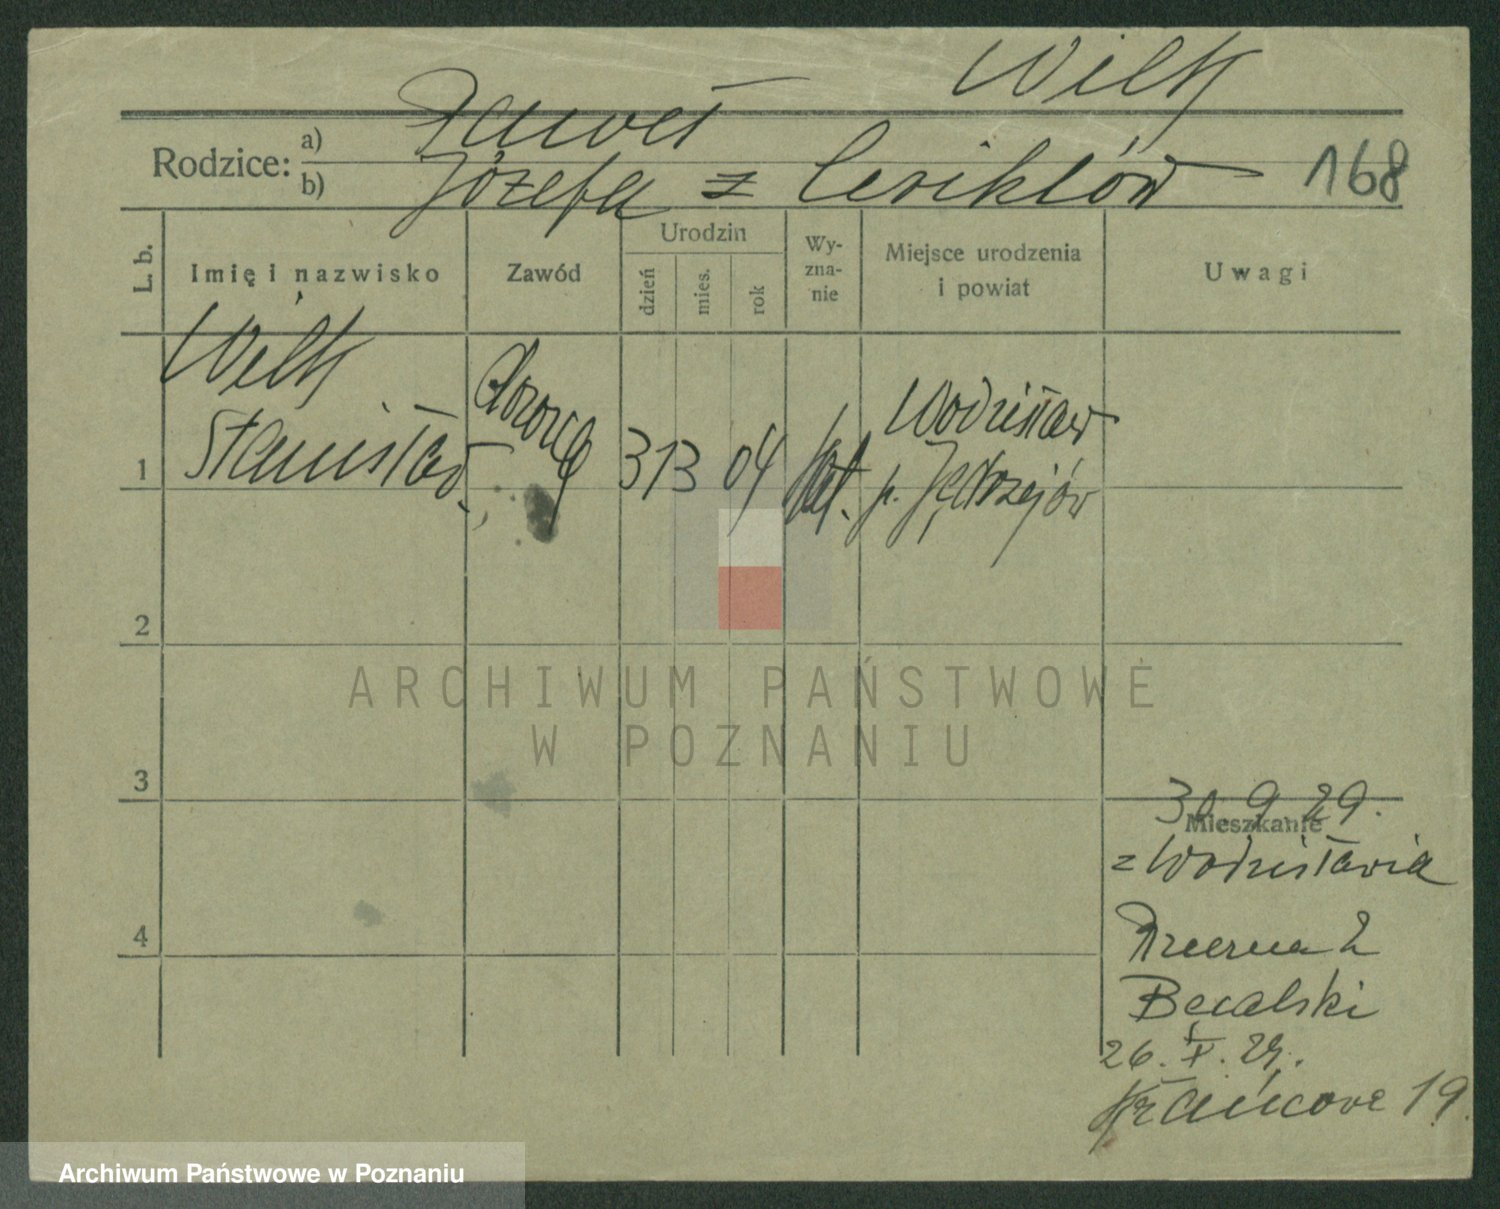 Wilk
Rodzice: a) Paweł
b) Józefa z
168
L. b.
Imię i nazwisko
Zawód
Urodzin
dzień
mies.
rok
Wy-
zna-
nie
Miejsce urodzenia
i powiat
Uwagi
Wilk
Stanisław
dozorca
31 3 04
kat.
Wodzisław
p. Jędrzejów
1
2
3
4
ARCHIWUM PAŃSTWOWE
W POZNANIU
30.9.29.
Mieszkanie
z Wodzisławia
2
26. X. 29.
19
Archiwum Państwowe w Poznaniu